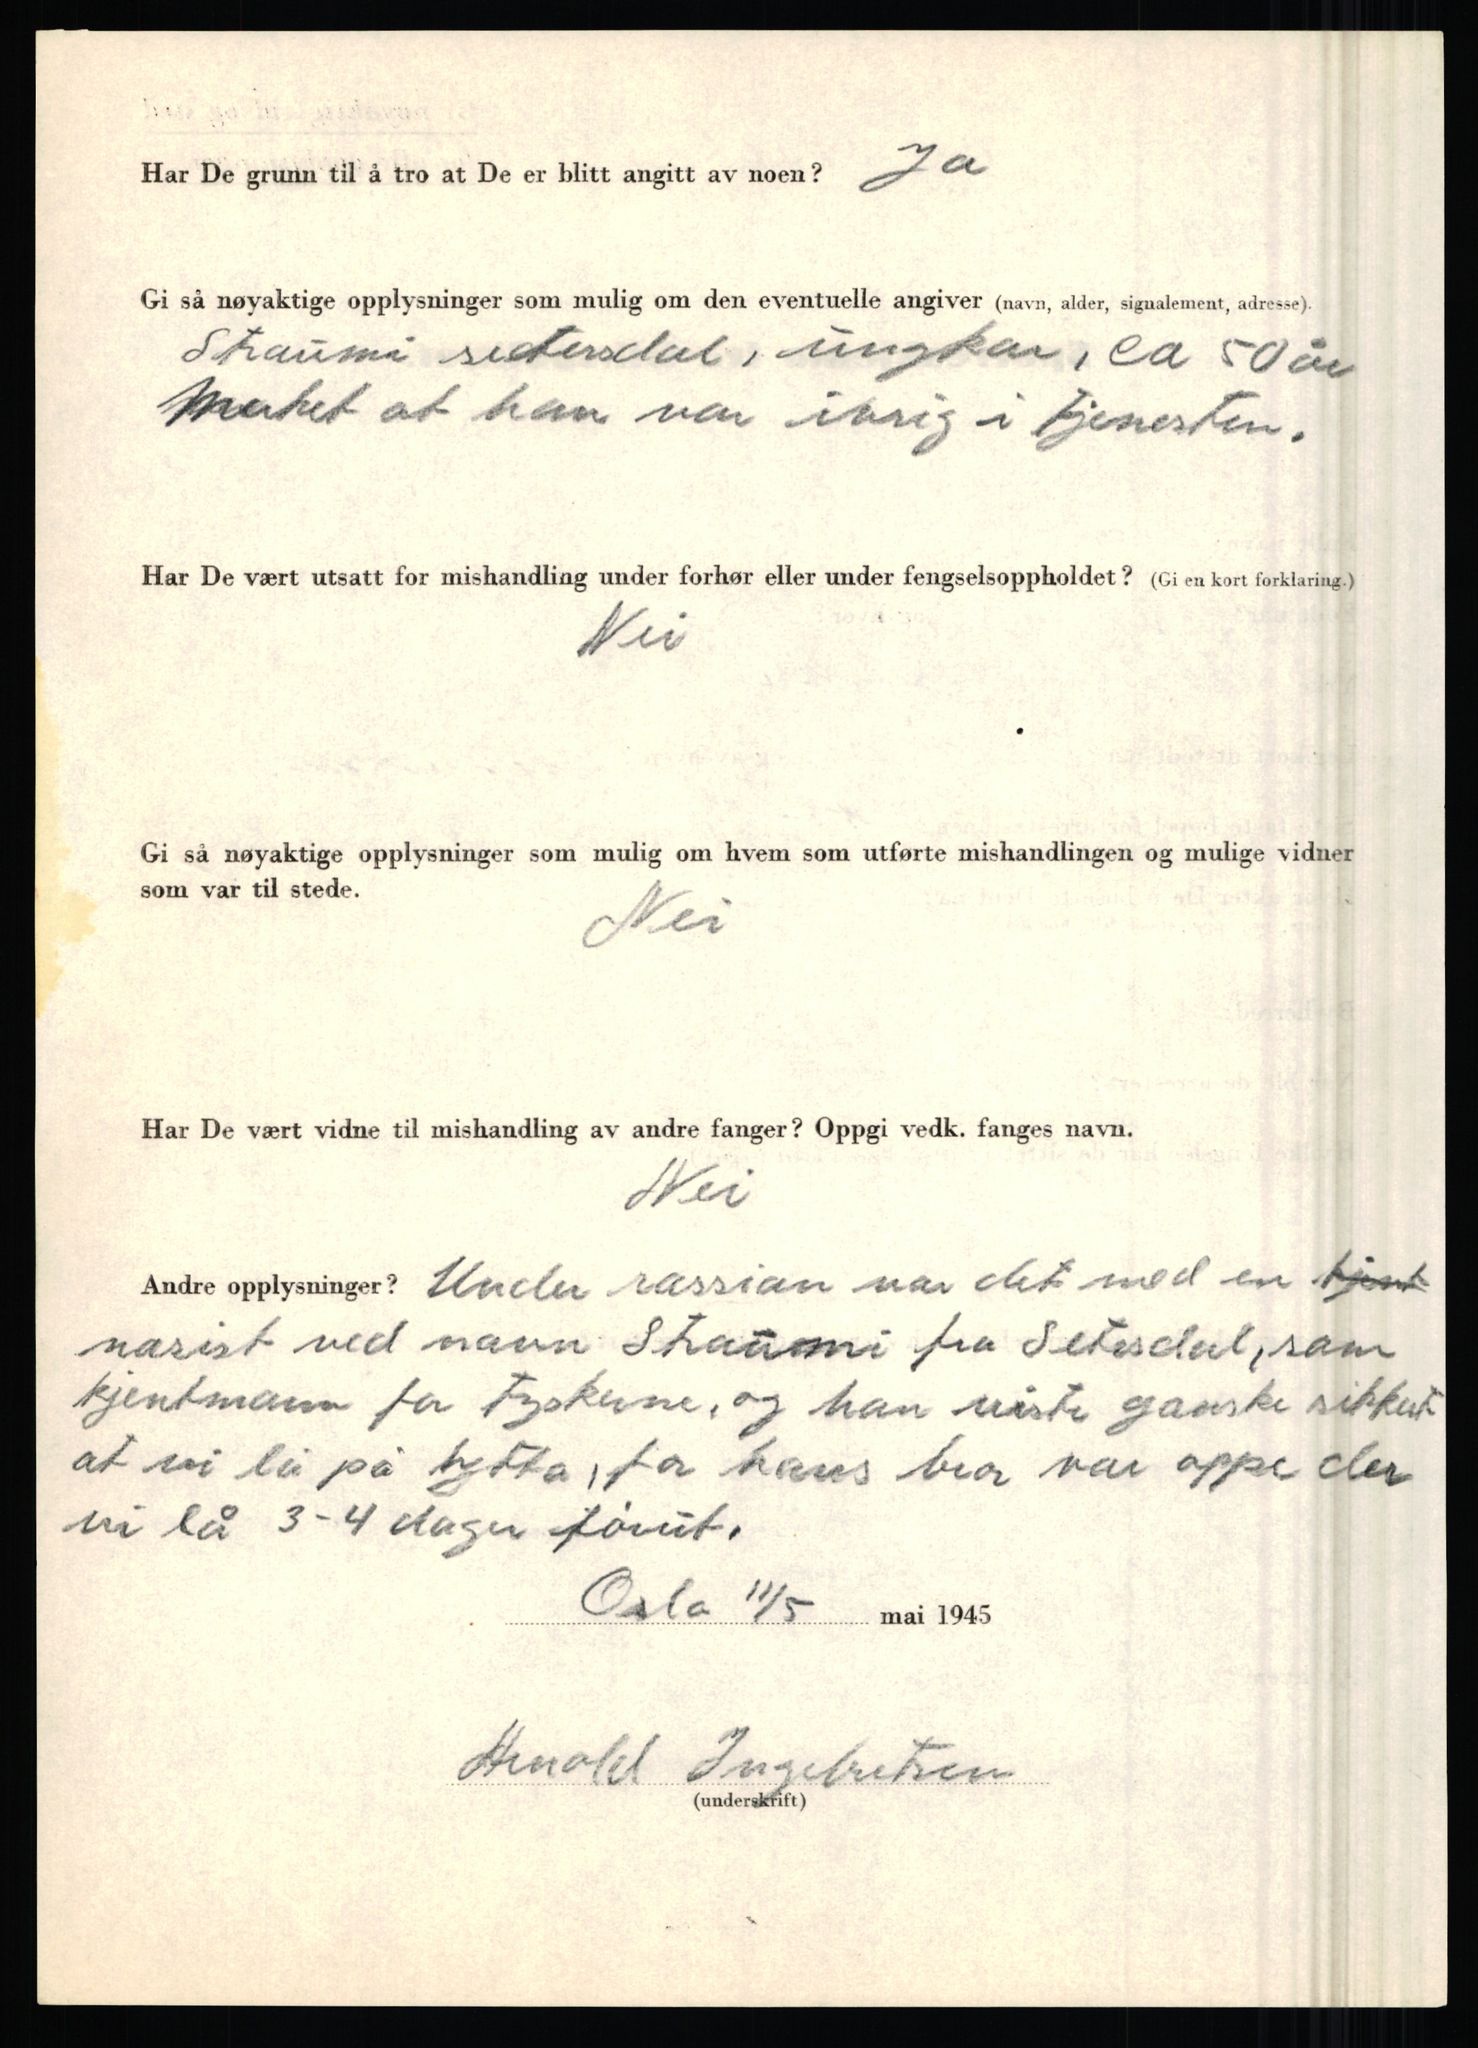 Har De grunn til å tro at De er blitt angitt av noen? Ja
Gi så nøyaktige opplysninger som mulig om den eventuelle angiver (navn, alder, signalement, adresse).
Straumi setersdal, ungkar, ca 50 år
Merket at han var ivrig i tjenesten.
Har De vært utsatt for mishandling under forhør eller under fengselsoppholdet? (Gi en kort forklaring.)
Nei
Gi så nøyaktige opplysninger som mulig om hvem som utførte mishandlingen og mulige vidner
som var til stede.
Nei
Har De vært vidne til mishandling av andre fanger? Oppgi vedk. fanges navn.
Nei
Andre opplysninger? Under rassian var det med en kjent
nazist ved navn Straumi fra Setesdal, som
kjentmann for tyskerne, og han viste ganske sikkert
at vi lå på hytta, for hans bror var oppe der
vi lå 3-4 dager førut.
Oslo 11/5 mai 1945
Arnold Ingebretsen
(underskrift)